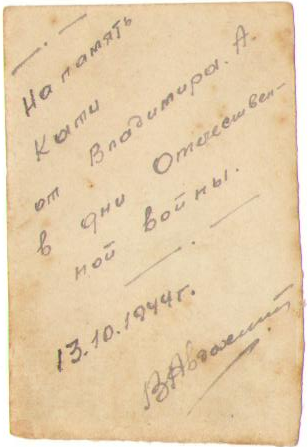 На память
Кати
от Владимира. А.
в дни Отечествен-
ной войны.
13.10.1944г.